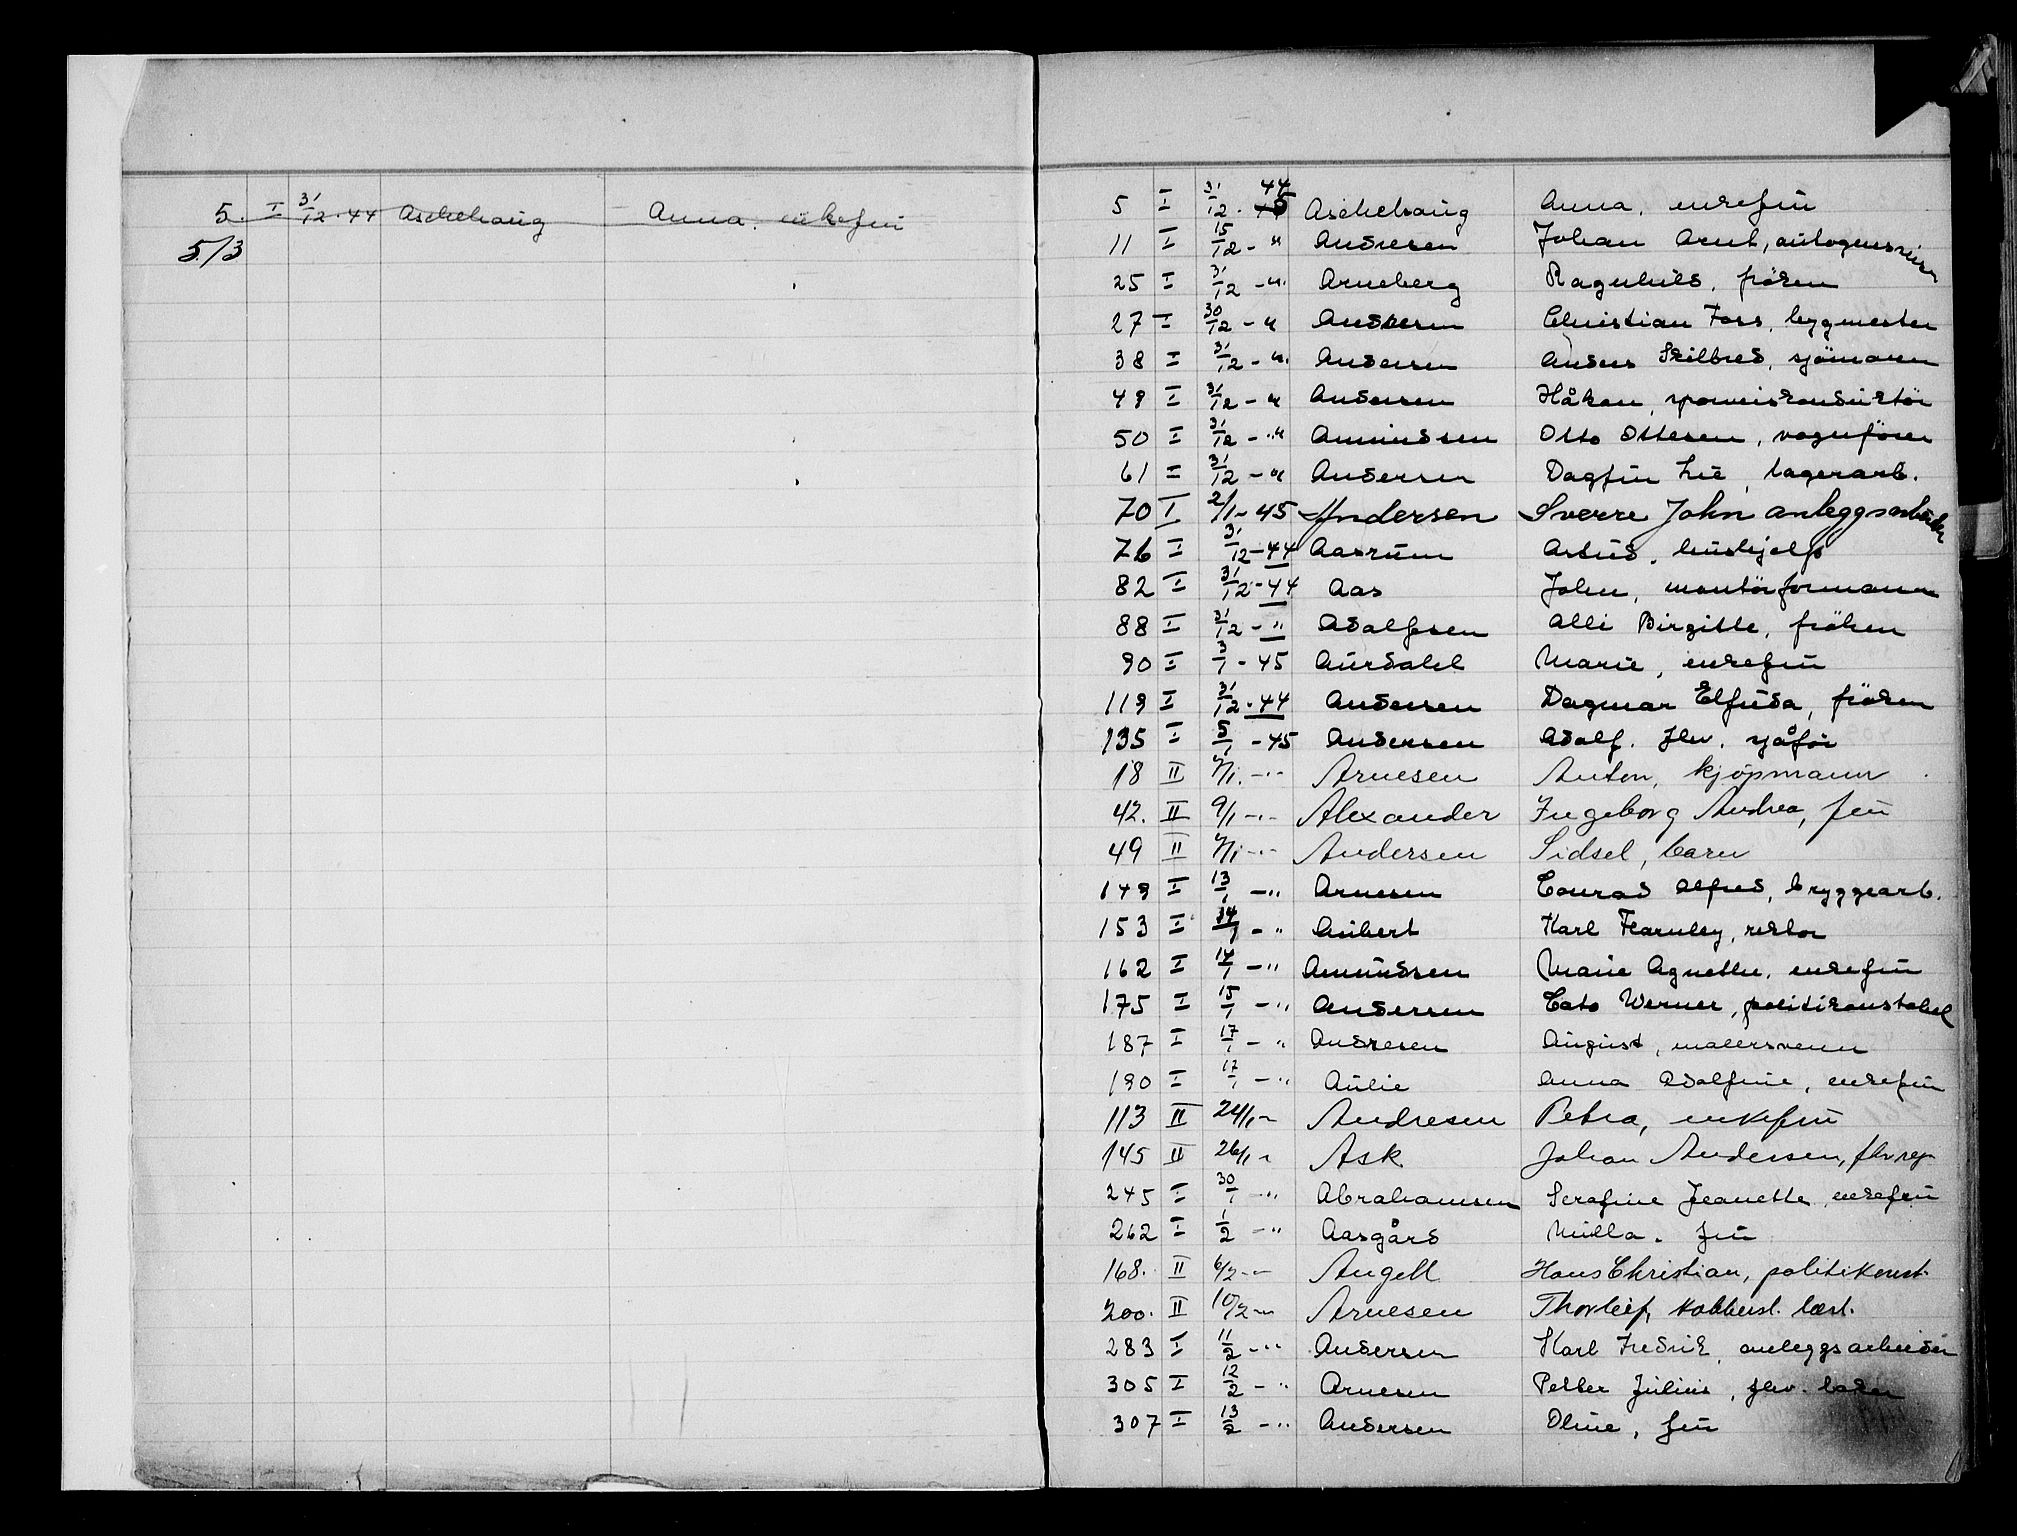 5. I 31/12-44 Aschehoug Anna. enkefru
5/3
5 I 31/12-44 Aschehoug Anna, enkefru
11 I 15/12-" Andresen Johan Arnt, autogensveiser
25 I 31/12-" Arneberg Ragnhild, fröken
27 I 30/12-" Andresen Christian Foss, bygmester
38 I 31/12-" Andersen Anders Skilbred, sjömann
49 I 31/12-" Andersen Håkon, sporveiskonduktör
50 I 31/12-" Amundsen Otto Ottesen, vognförer
61 I 31/12-" Andersen Dagfin Lie, lagerarb.
70 I 2/1-45 Andersen Sverre John anleggsarbeider
76 I 31/12-44 Aasrum Astrid, hushjelp
82 I 31/12-44 Aas John, montörformann
88 I 31/12-" Adolfsen Alli Birgitte, fröken
90 I 3/1-45 Aursdahl Marie, enkefru
119 I 31/12-44 Andersen Dagmar Elfrida, fröken
135 I 5/1-45 Andersen Adolf. fhv. sjåför
18 II 4/1-"- Arnesen Anton, kjöpmann
42. II 9/1-"- Alexander Ingeborg Andrea, fru
49 II 4/1-"- Andersen Sidsel, barn
149 I 13/1-" Arnesen Conrad Alfred, bryggearb.
153 I 14/1-" Aubert Karl Fearnley, rektor
162 I 14/1-" Amundsen Marie Agnethe, enkefru
175 I 15/1-" Andersen Cato Werner, politikonstabel
187 I 17/1-" Andresen August, malersvenn
190 I 17/1-" Aulie Anna Adolfine, enkefru
113 II 24/1-" Andresen Petra, enkefru
145 II 26/1-" Ask Johan Andersen, fhv
245 I 30/1-" Abrahamsen Serafine Jeanette, enkefru
262 I 1/2-" Aasgård Milla. fru
168. II 6/2-"- Angell Hans Christian, politikonst.
200. II 10/2-"- Arnesen Thorleif, kobbersl. lærl.
283 I 11/2-" Andersen Karl Fredrik, anleggsarbeider
305 I 12/2-" Arnesen Petter Julius, fhv. baker
307 I 13/2-" Andersen Oline, fru